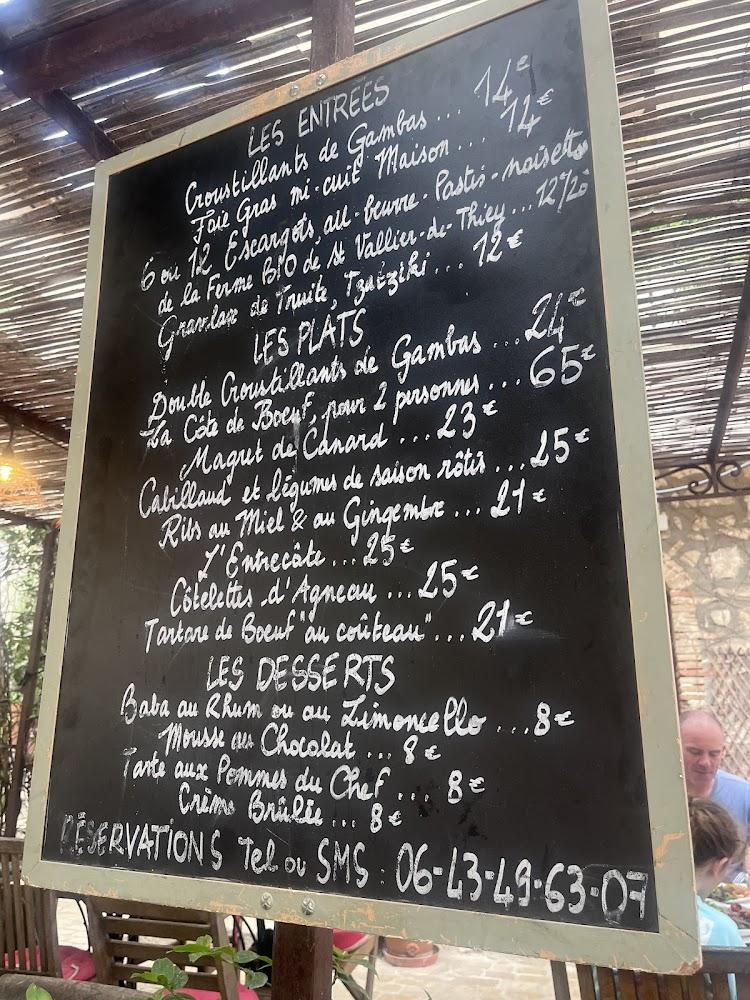 LES ENTREES
Croustillants de Gambas ... 14€
Foie Gras mi-cuit Maison ... 14€
6 ou 12 Escargots ail-beurre-Pastis-noisette
de la Ferme BIO de St Vallier-de-Thiey ... 12/20
Gravlax de Truite, Tzatziki ... 12€
LES PLATS
Double Croustillants de Gambas ... 24€
La Côte de Boeuf, pour 2 personnes ... 65€
Magret de Canard ... 23€
Cabillaud et légumes de saison rôtis ... 25€
Ribs au Miel & au Gingembre ... 21€
L'Entrecôte ... 25€
Côtelettes d'Agneau ... 25€
Tartare de Boeuf "au coûteau" ... 21€
LES DESSERTS
Baba au Rhum ou au Limoncello ... 8€
Mousse au Chocolat ... 8€
Tarte aux Pommes du Chef ... 8€
Crème Brûlée ... 8€
RÉSERVATIONS Tel ou SMS : 06-43-49-63-07